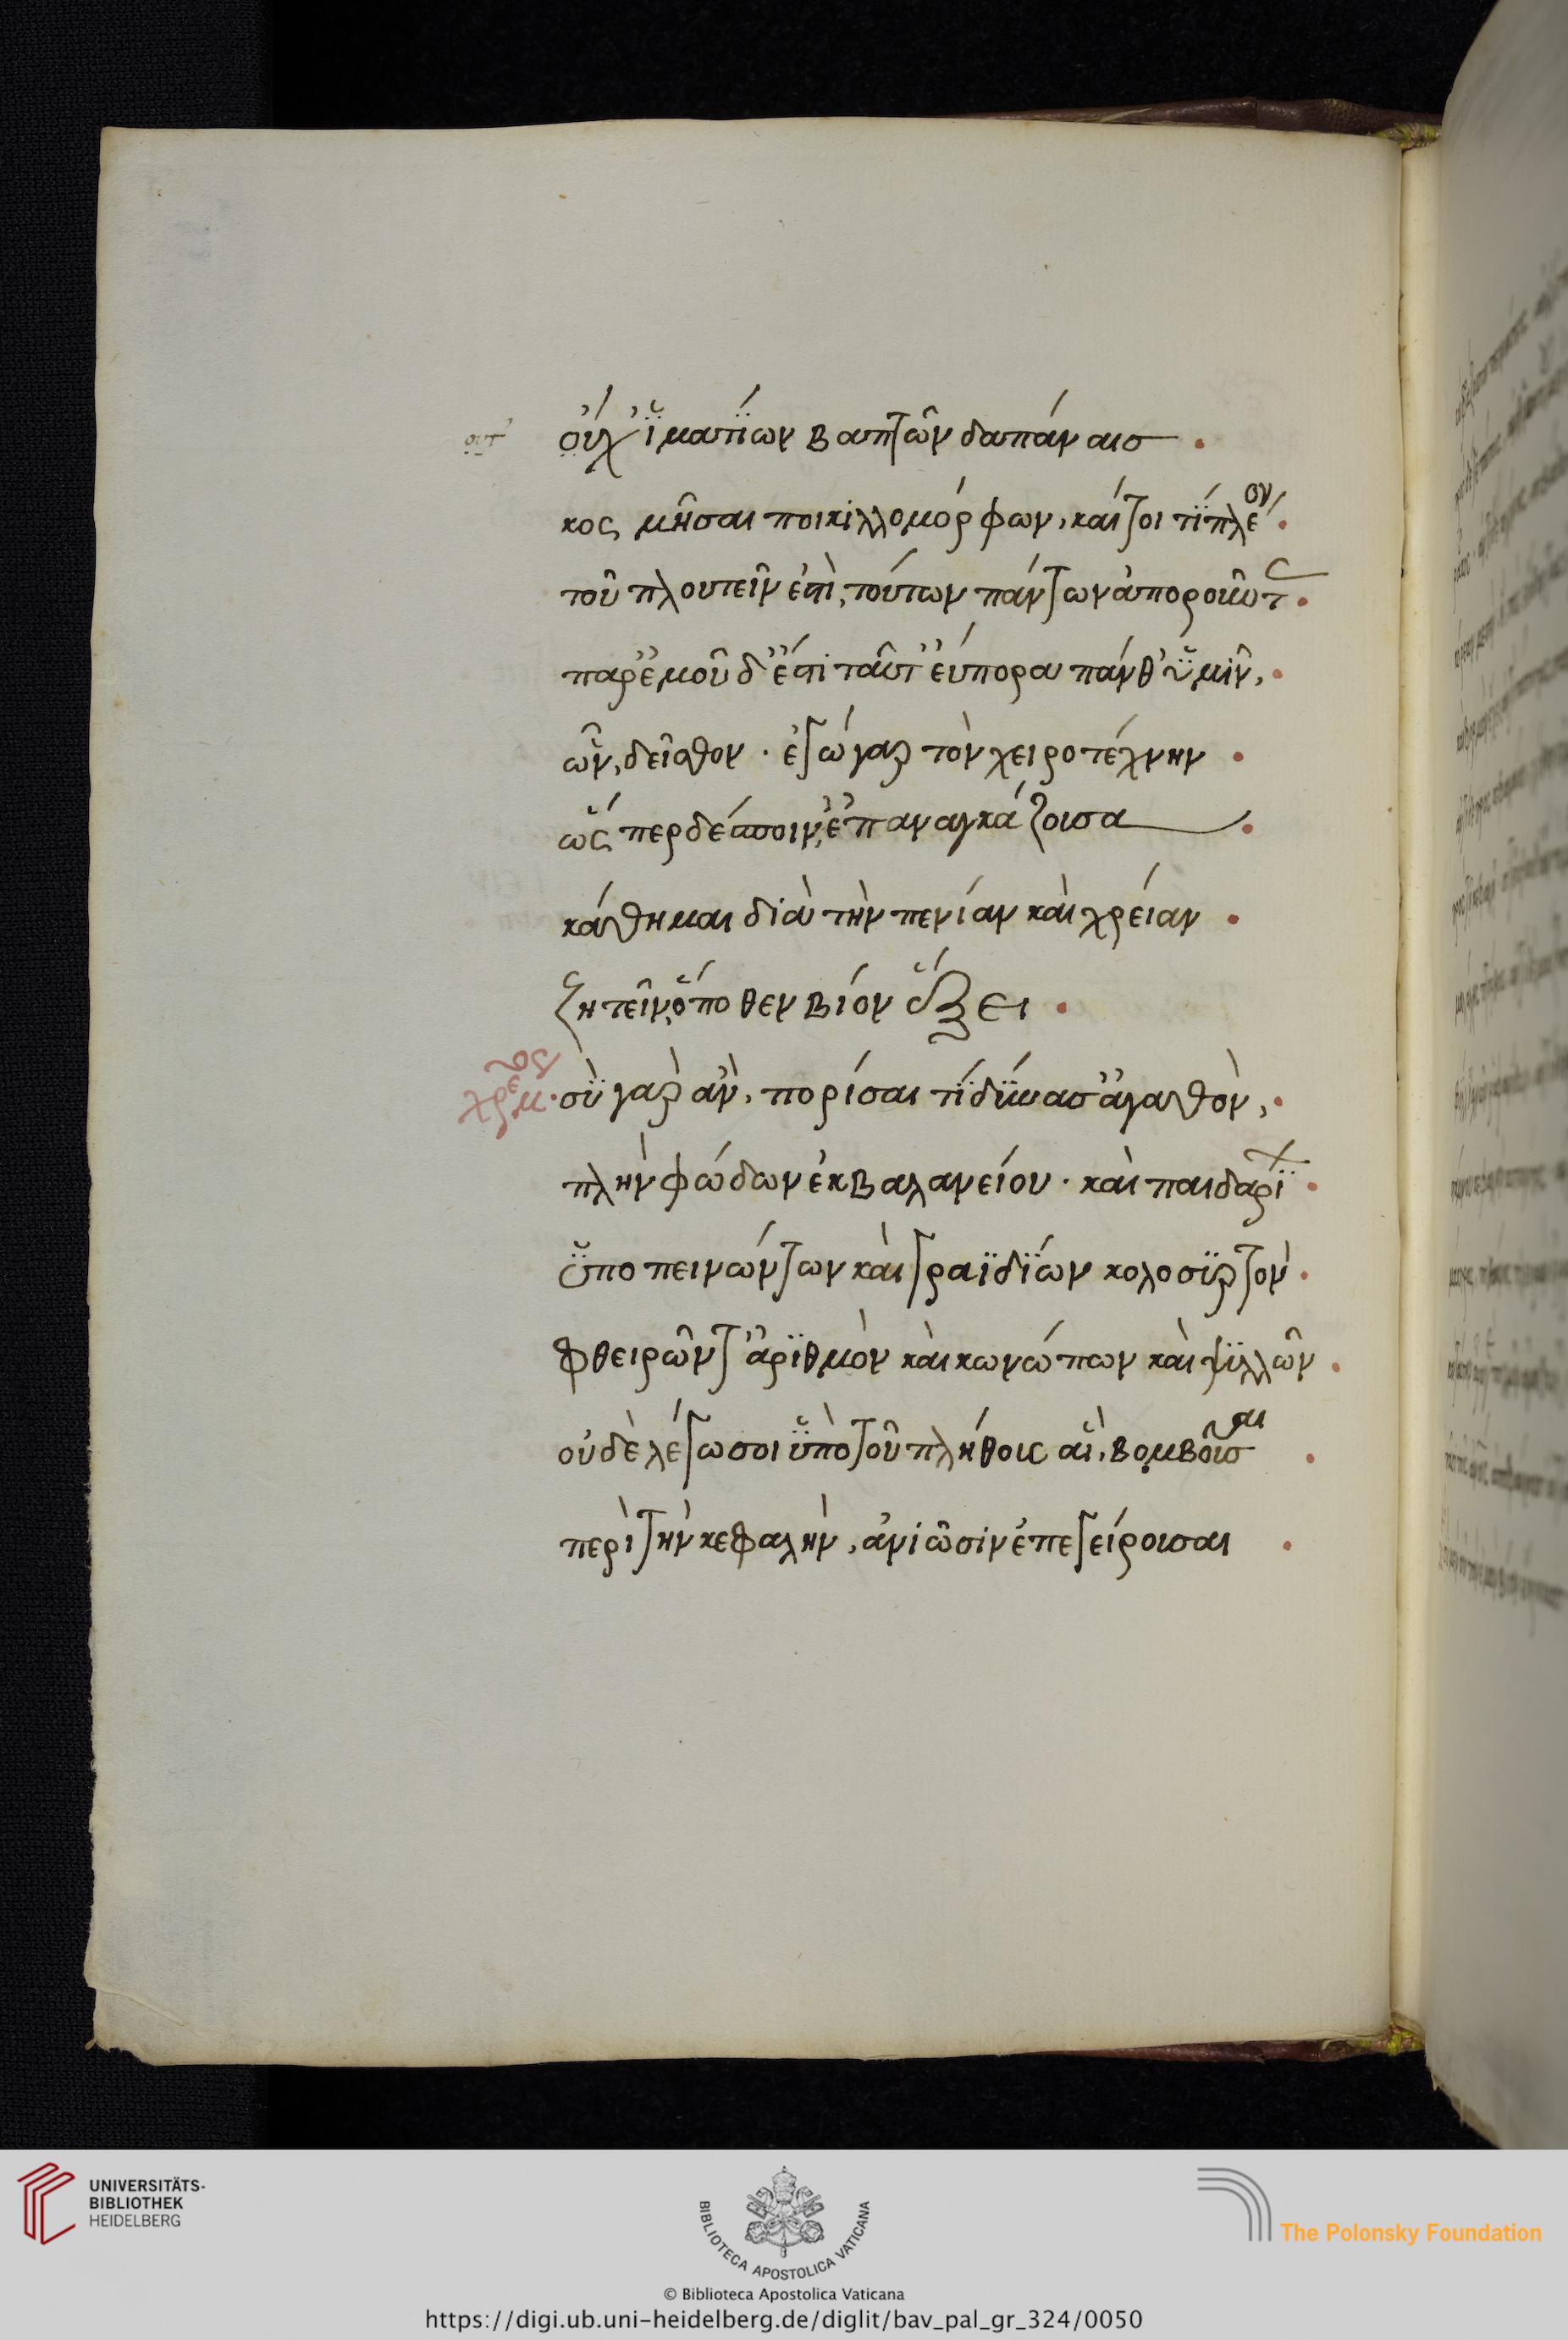 ουτ'
οὐχ' ἱματίων βαπτῶν δαπάναισ.
κοσμῆσαι ποικιλλομόρφων, καίτοι τί πλέον.
τοῦ πλουτεῖν ἐστὶ, τούτων πάντων ἀποροῦντ.
παρ' ἐμοῦ δ' ἔστι ταῦτ' εὔπορα πάνθ' ὑμῖν,.
ὧν, δεῖσθον · ἐγὼ γαρ τὸν χειροτέχνην.
ὥσπερ δέσποιν' ἐπαναγκάζουσα.
κάθημαι διὰ τὴν πενίαν καὶ χρείαν.
ζητεῖν, ὅποθεν βίον ἕξει.
χρεμ. σὺ γαρ ἀν, πορίσαι τί δύνασ' ἀγαθὸν,.
πλὴν φώδων ἐκ βαλανείου · καὶ παιδαρί.
ὑποπεινώντων καὶ γραϊδίων κολοσϋρτὸν.
φθειρῶντ' ἀριθμὸν καὶ κωνώπων καὶ ψυλλῶν.
οὐδὲ λέγω σοι ὑπὸ τοῦ πλήθους αἳ, βομβοῦσαι.
περὶ τὴν κεφαλὴν, ἀνιῶσιν ἐπεγείρουσαι.
UNIVERSITÄTS-
BIBLIOTHEK
HEIDELBERG
BIBLIOTECA APOSTOLICA VATICANA
The Polonsky Foundation
© Biblioteca Apostolica Vaticana
https://digi.ub.uni-heidelberg.de/diglit/bav_pal_gr_324/0050